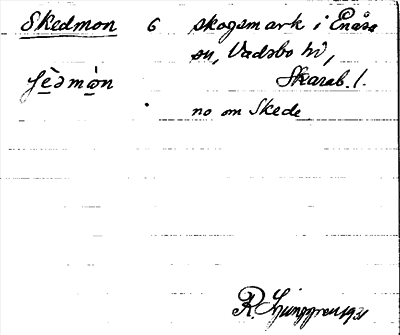 Skedmon 6 skogsmark i Enåsa
sn, Vadsbo hd,
ʃèdmòn Skarab. l.
no om Skede
R Ljunggren 1931